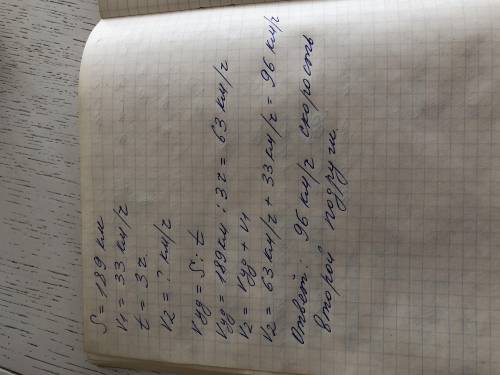 S = 189 км
v1 = 33 км/ч
t = 3 ч
v2 = ? км/ч
vуд = S : t
vуд = 189 км : 3 ч = 63 км/ч
v2 = vуд + v1
v2 = 63 км/ч + 33 км/ч = 96 км/ч
Ответ: 96 км/ч скорость
второй подруги.